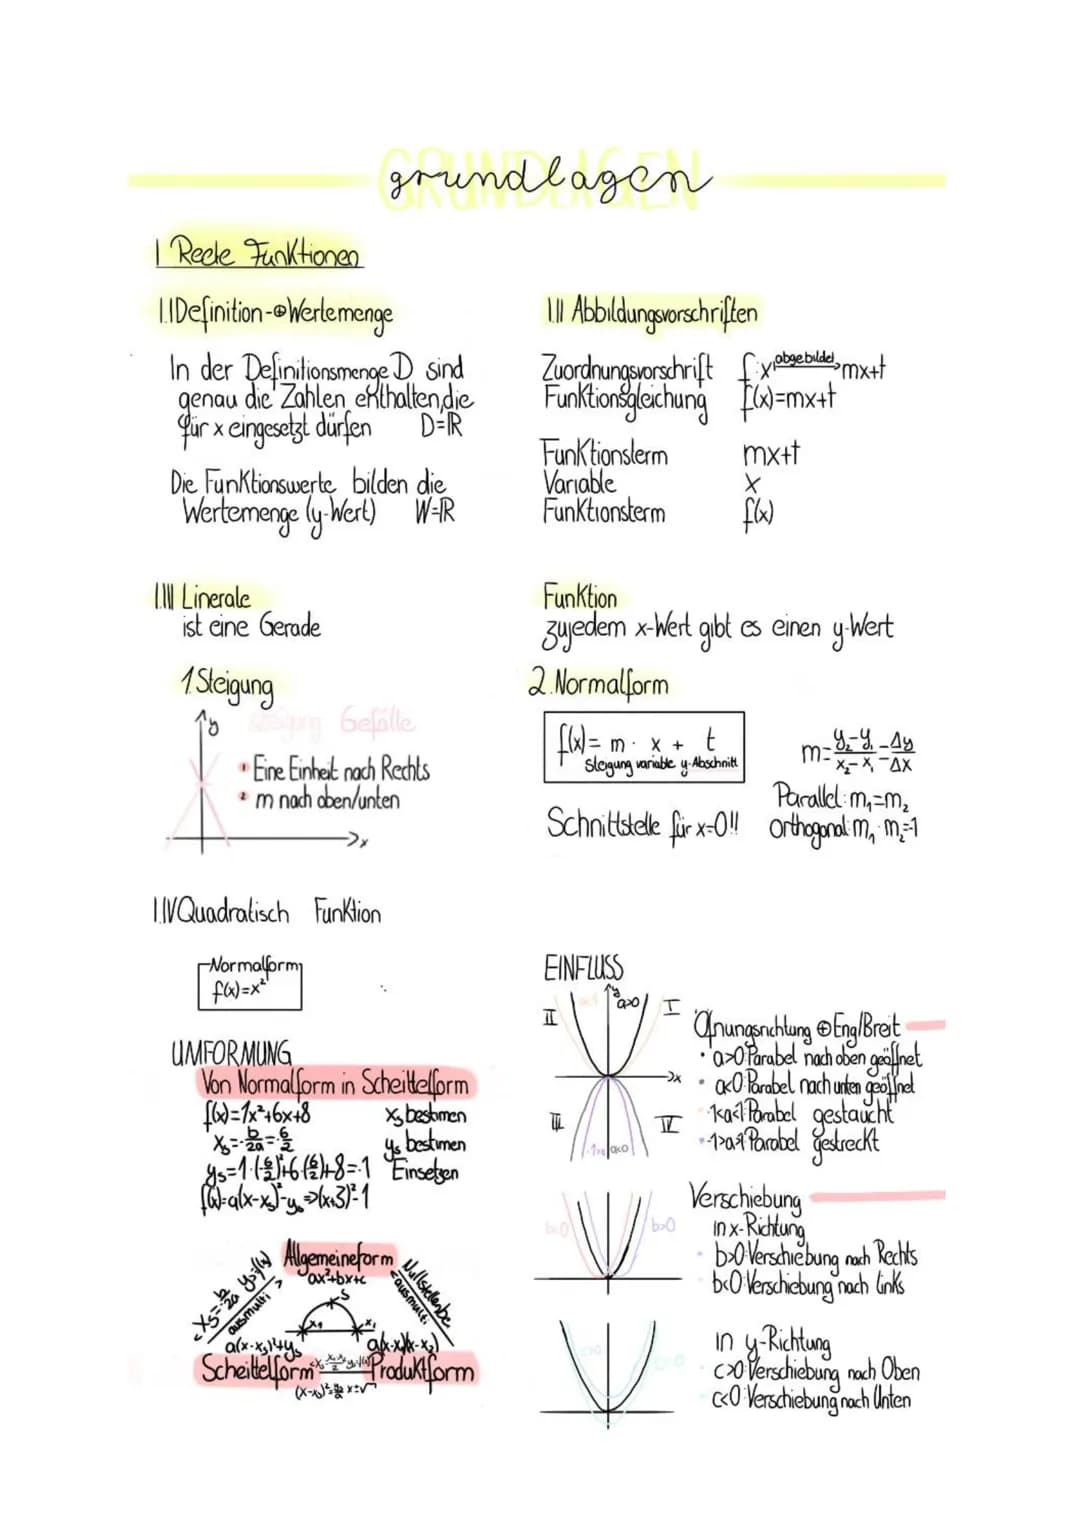 GRUNDLAGEN
grundlagen
I Reele Funktionen
I.I Definition-⊕Wertemenge
In der Definitionsmenge D sind
genau die Zahlen enthalten, die
für x eingesetzt dürfen D=ℝ
Die Funktionswerte bilden die
Wertemenge (y-Wert) W=ℝ
I.II Abbildungsvorschriften
Zuordnungsvorschrift f:x abgebildet→ mx+t
Funktionsgleichung f(x)=mx+t
Funktionsterm mx+t
Variable x
Funktionsterm f(x)
I.III Linerale Funktion
ist eine Gerade
zujedem x-Wert gibt es einen y-Wert
1. Steigung
y
Steigung Gefälle
1 Eine Einheit nach Rechts
2 m nach oben/unten
x
2. Normalform
f(x)= m · x + t
Steigung variable y-Abschnitt
m=(y₂-y₁)/(x₂-x₁)=Δy/Δx
Parallel: m₁=m₂
Schnittstelle für x=0!! Orthogonal: m₁·m₂=-1
I.IV Quadratisch Funktion
Normalform
f(x)=x²
UMFORMUNG
Von Normalform in Scheittelform
f(x)=1x²+6x+8 xₛ bestimmen
xₛ=-b/2a=-6/2 yₛ bestimmen
yₛ=1·(-6/2)²+6·(-6/2)+8=-1 Einsetzen
f(x)=a(x-xₛ)²-yₛ⇒(x+3)²-1
Allgemeineform
ax²+bx+c
xₛ=-b/2a yₛ=f(xₛ)
ausmulti
Nullstellenbe.
ausmulti.
S
x₁ x₂
a(x-xₛ)²+yₛ a(x-x₁)(x-x₂)
Scheittelform Produktform
EINFLUSS
y
a>0
II I
x
III IV
a<0
Öfnungsrichtung ⊕ Eng/Breit
• a>0: Parabel nach oben geöffnet
• a<0: Parabel nach unten geöffnet
• -1<a<1 Parabel gestaucht
• -1>a>1 Parabel gestreckt
b<0 b>0
Verschiebung
in x-Richtung
• b>0: Verschiebung nach Rechts
b<0: Verschiebung nach links
in y-Richtung
c>0: Verschiebung nach Oben
c<0: Verschiebung nach Unten